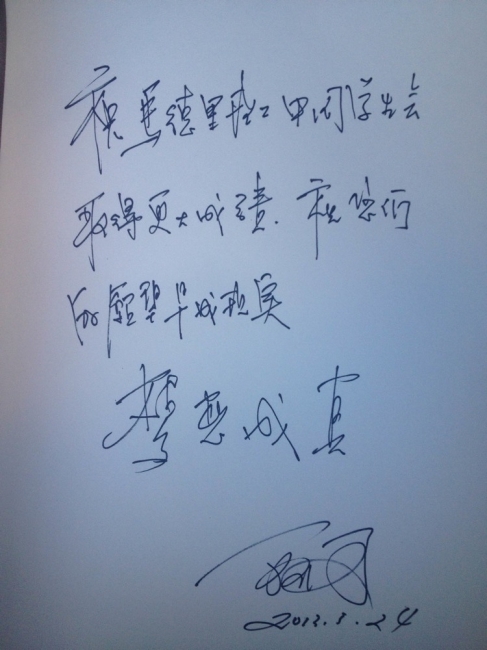 祝马德里理工中国学生会
取得更大成绩.祝您们
的愿望早成现实
梦想成真
2013.3.24